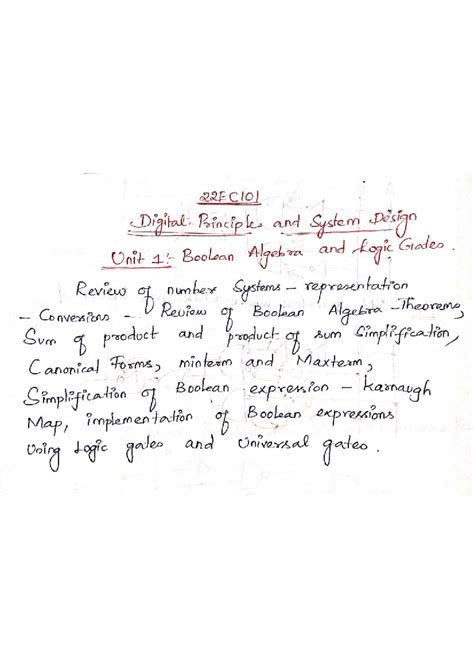 22EC101
Digital Principles and System Design
Unit 1:- Boolean Algebra and Logic Gates.
Review of number Systems - representation
- Conversions - Review of Boolean Algebra - Theorems,
Sum of product and product of sum Simplification,
Canonical Forms, minterm and Maxterm,
Simplification of Boolean expression - Karnaugh
Map, implementation of Boolean expressions
Using Logic gates and Universal gates.